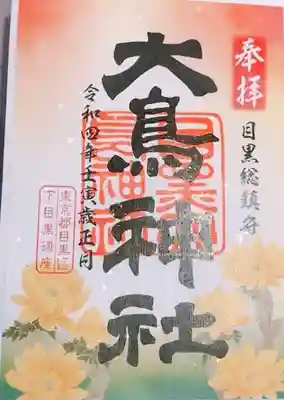 奉拝
目黒総鎮守
大鳥神社
令和四年壬寅歳正月
東京都目黒区
下目黒鎮座